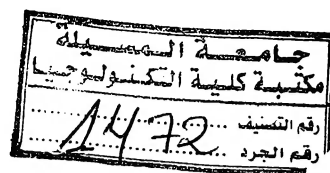 جامعة المسيلة
مكتبة كلية التكنولوجيا
رقم التصنيف ..............
رقم الجرد ..............
1472